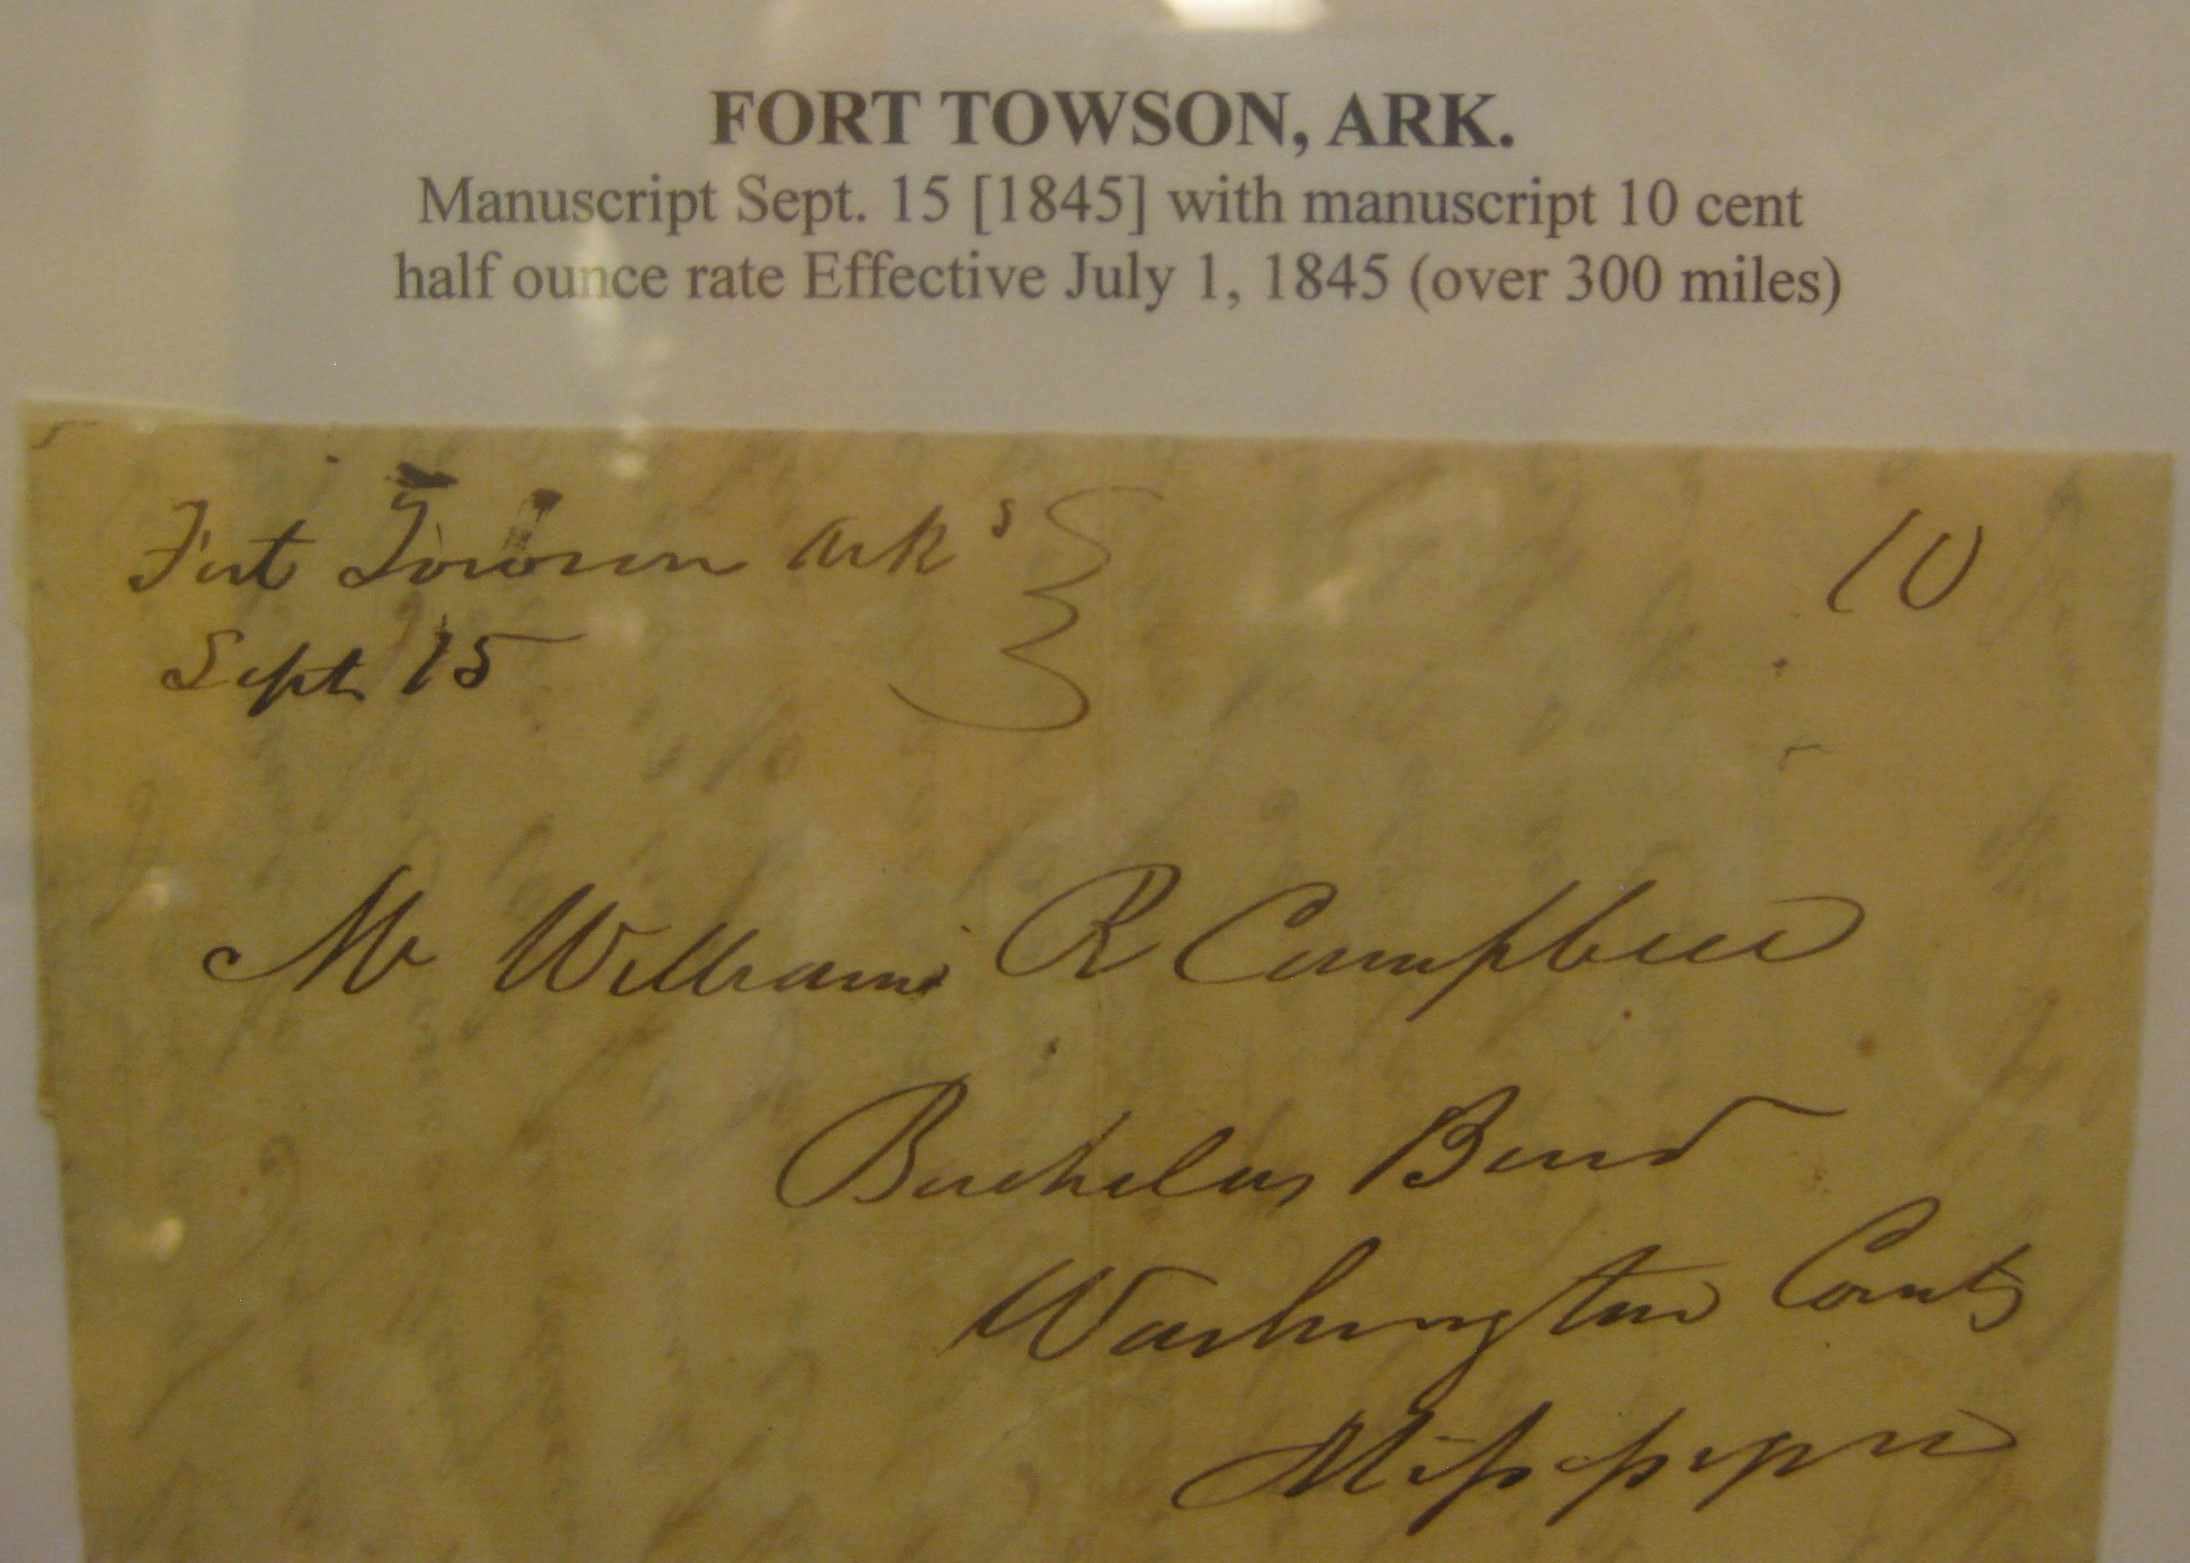 FORT TOWSON, ARK.
Manuscript Sept. 15 [1845] with manuscript 10 cent
half ounce rate Effective July 1, 1845 (over 300 miles)
Fort Towson Arks 10
Sept 15
Mr William R Campbell
Bachelors Bend
Washington County
Mississippi